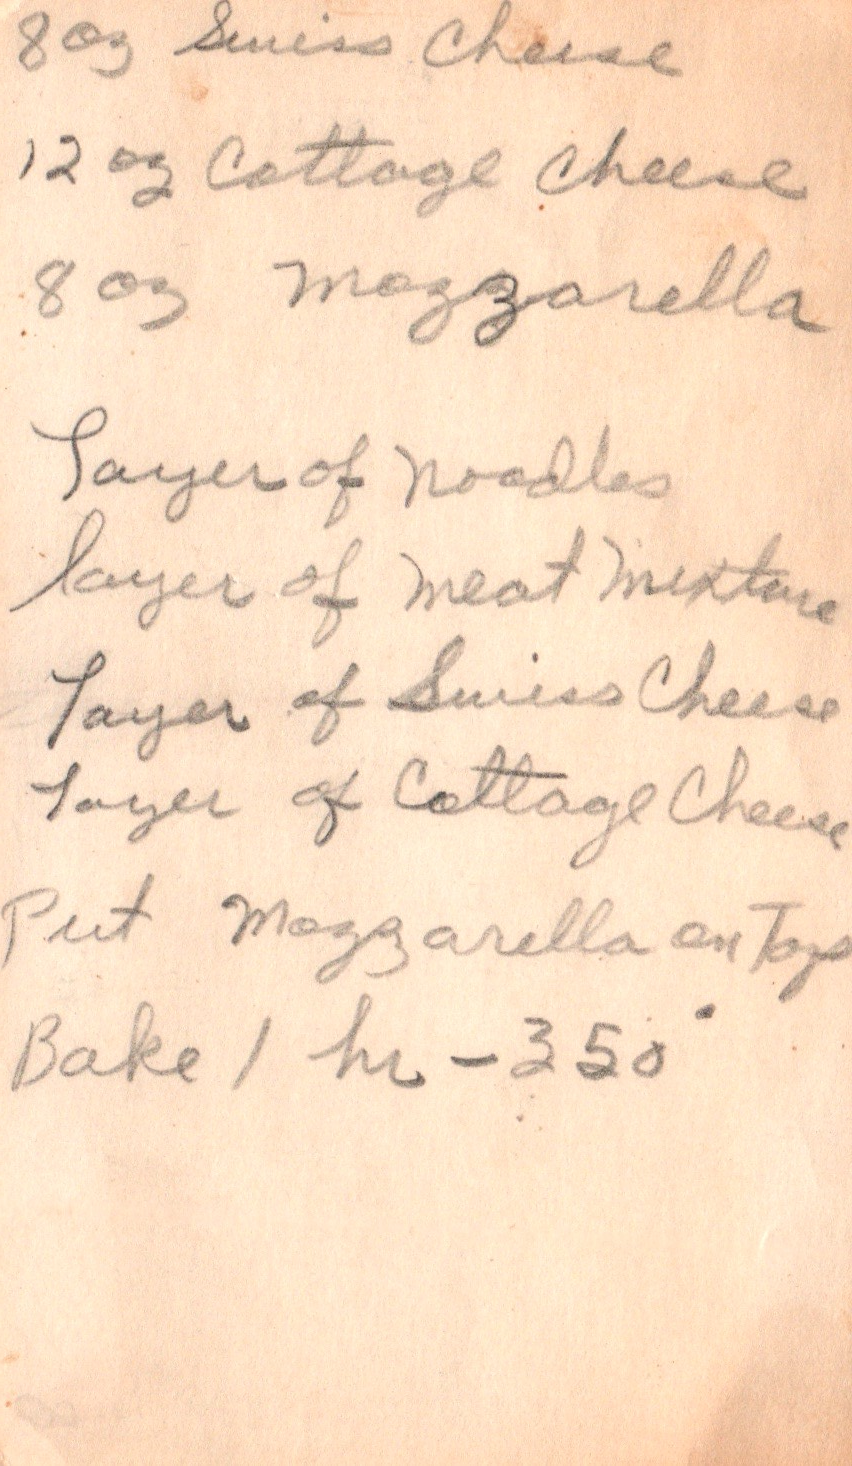 8 oz Swiss Cheese
12 oz Cottage Cheese
8 oz Mozzarella
Layer of Noodles
layer of Meat Mixture
Layer of Swiss Cheese
Layer of Cottage Cheese
Put Mozzarella on Top
Bake 1 hr - 350°